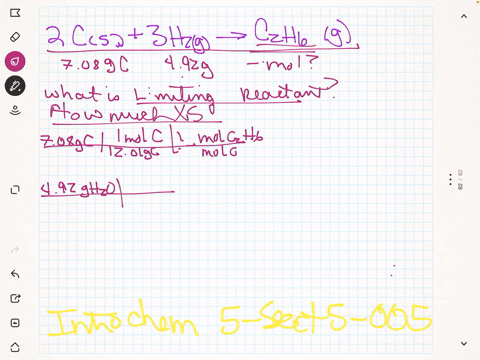 2 C(s) + 3H2(g) → C2H6 (g)
7.08gC 4.92g - mol?
what is Limiting Reactant?
How much XS
7.08gC | 1 mol C | 1. mol C2H6
12.01gC | mol C
4.92 gH2O |
Introchem 5-Sect 5-005